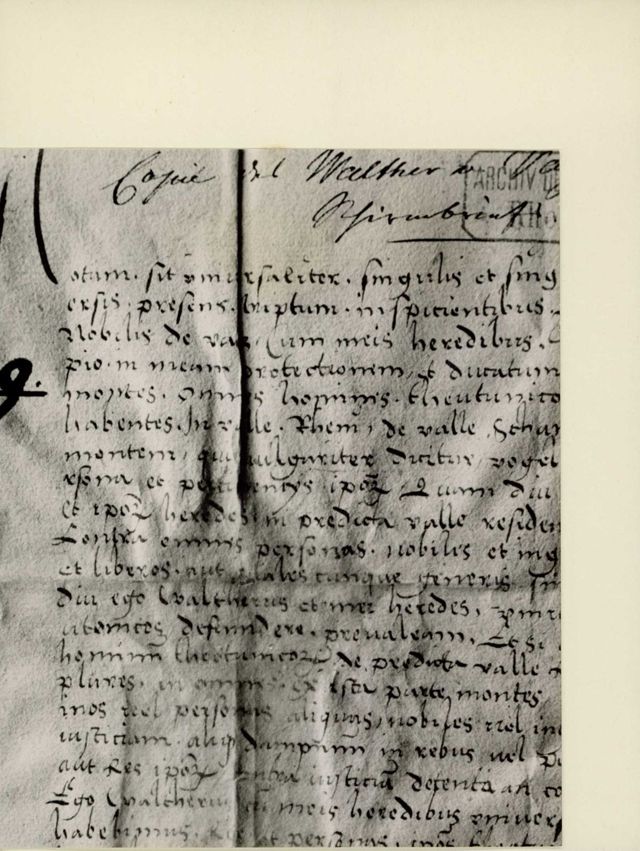 Copie del Walther
ARCHIV
otum. sit universaliter. singulis et sing
ersis. presens. scriptum. inspicientibus.
Nobilis de vaz. Cum meis heredibus.
pio. in meam protectionem, et ducatum
montes. omnes homines. theutunico
habentes. In valle. Rheni, de valle, Scha
montem, qui vulgariter dicitur vogel
rsona et ipoz Quam diu
et ipoz heredes in predicta valle residen
Contra omnes personas. nobiles et ing
et liberos. aut quales cunque generis.
diu ego Waltherus et mei heredes,
defendere. prevaleam. Et si
hominum theotunicoz de predicta valle
plures. in omnes. ex ista parte montes
inos vel personas aliquas, nobiles vel
iusticiam. aliq dampnum in rebus vel
aut Res ipoz contra iusticia detenta
Ego Waltherus cu meis heredibus univers
habebimus. et personas,